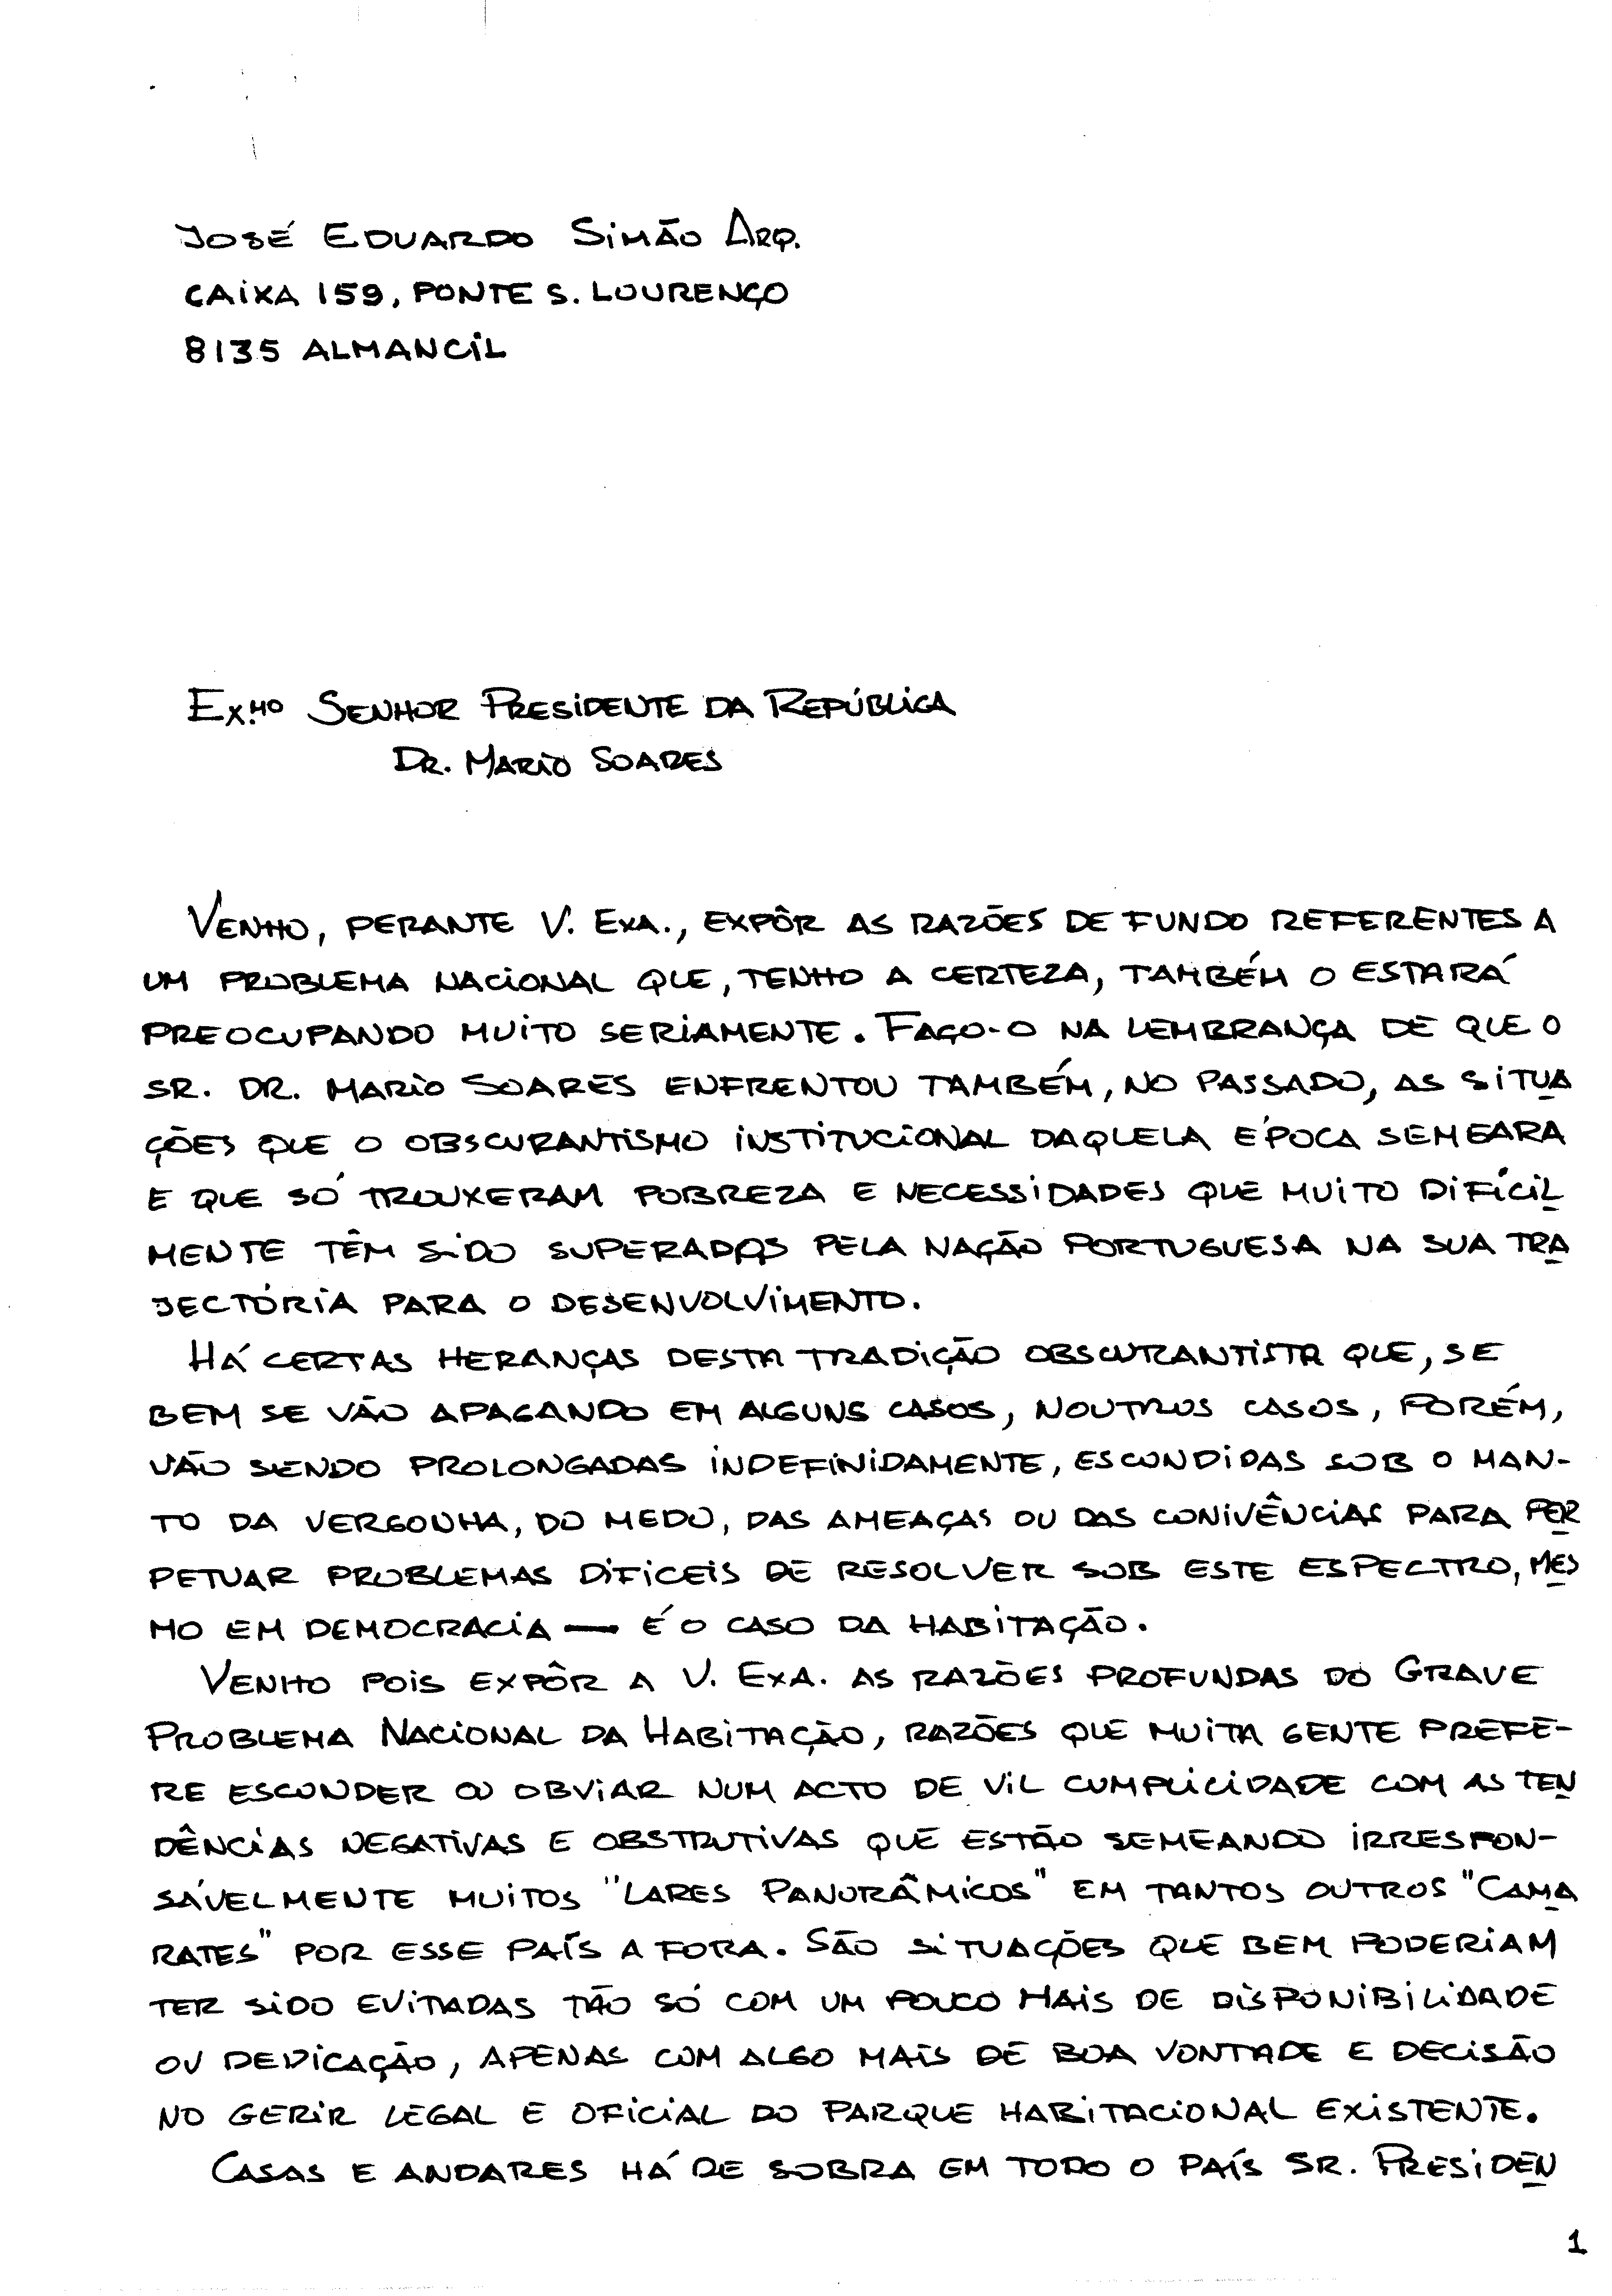 JOSÉ EDUARDO SIMÃO ARQ.
CAIXA 159, PONTE S. LOURENÇO
8135 ALMANCIL
EX.MO SENHOR PRESIDENTE DA REPÚBLICA
DR. MARIO SOARES
VENHO, PERANTE V. EXA., EXPÔR AS RAZÕES DE FUNDO REFERENTES A
UM PROBLEMA NACIONAL QUE, TENHO A CERTEZA, TAMBÉM O ESTARÁ
PREOCUPANDO MUITO SERIAMENTE. FAÇO-O NA LEMBRANÇA DE QUE O
SR. DR. MARIO SOARES ENFRENTOU TAMBÉM, NO PASSADO, AS SITUA
ÇÕES QUE O OBSCURANTISMO INSTITUCIONAL DAQUELA ÉPOCA SEMEARA
E QUE SÓ TROUXERAM POBREZA E NECESSIDADES QUE MUITO DIFÍCIL
MENTE TÊM SIDO SUPERADAS PELA NAÇÃO PORTUGUESA NA SUA TRA
JECTÓRIA PARA O DESENVOLVIMENTO.
HÁ CERTAS HERANÇAS DESTA TRADIÇÃO OBSCURANTISTA QUE, SE
BEM SE VÃO APAGANDO EM ALGUNS CASOS, NOUTROS CASOS, PORÉM,
VÃO SENDO PROLONGADAS INDEFINIDAMENTE, ESCONDIDAS SOB O MAN-
TO DA VERGONHA, DO MEDO, DAS AMEAÇAS OU DAS CONIVÊNCIAS PARA PER
PETUAR PROBLEMAS DIFICEIS DE RESOLVER SOB ESTE ESPECTRO, MES
MO EM DEMOCRACIA — É O CASO DA HABITAÇÃO.
VENHO POIS EXPÔR A V. EXA. AS RAZÕES PROFUNDAS DO GRAVE
PROBLEMA NACIONAL DA HABITAÇÃO, RAZÕES QUE MUITA GENTE PREFE-
RE ESCONDER OU OBVIAR NUM ACTO DE VIL CUMPLICIDADE COM AS TEN
DÊNCIAS NEGATIVAS E OBSTRUTIVAS QUE ESTÃO SEMEANDO IRRESPON-
SÁVELMENTE MUITOS "LARES PANORÂMICOS" EM TANTOS OUTROS "CAMA
RATES" POR ESSE PAÍS A FORA. SÃO SITUAÇÕES QUE BEM PODERIAM
TER SIDO EVITADAS TÃO SÓ COM UM POUCO MAIS DE DISPONIBILIDADE
OU DEDICAÇÃO, APENAS COM ALGO MAIS DE BOA VONTADE E DECISÃO
NO GERIR LEGAL E OFICIAL DO PARQUE HABITACIONAL EXISTENTE.
CASAS E ANDARES HÁ DE SOBRA EM TODO O PAÍS SR. PRESIDEN
1